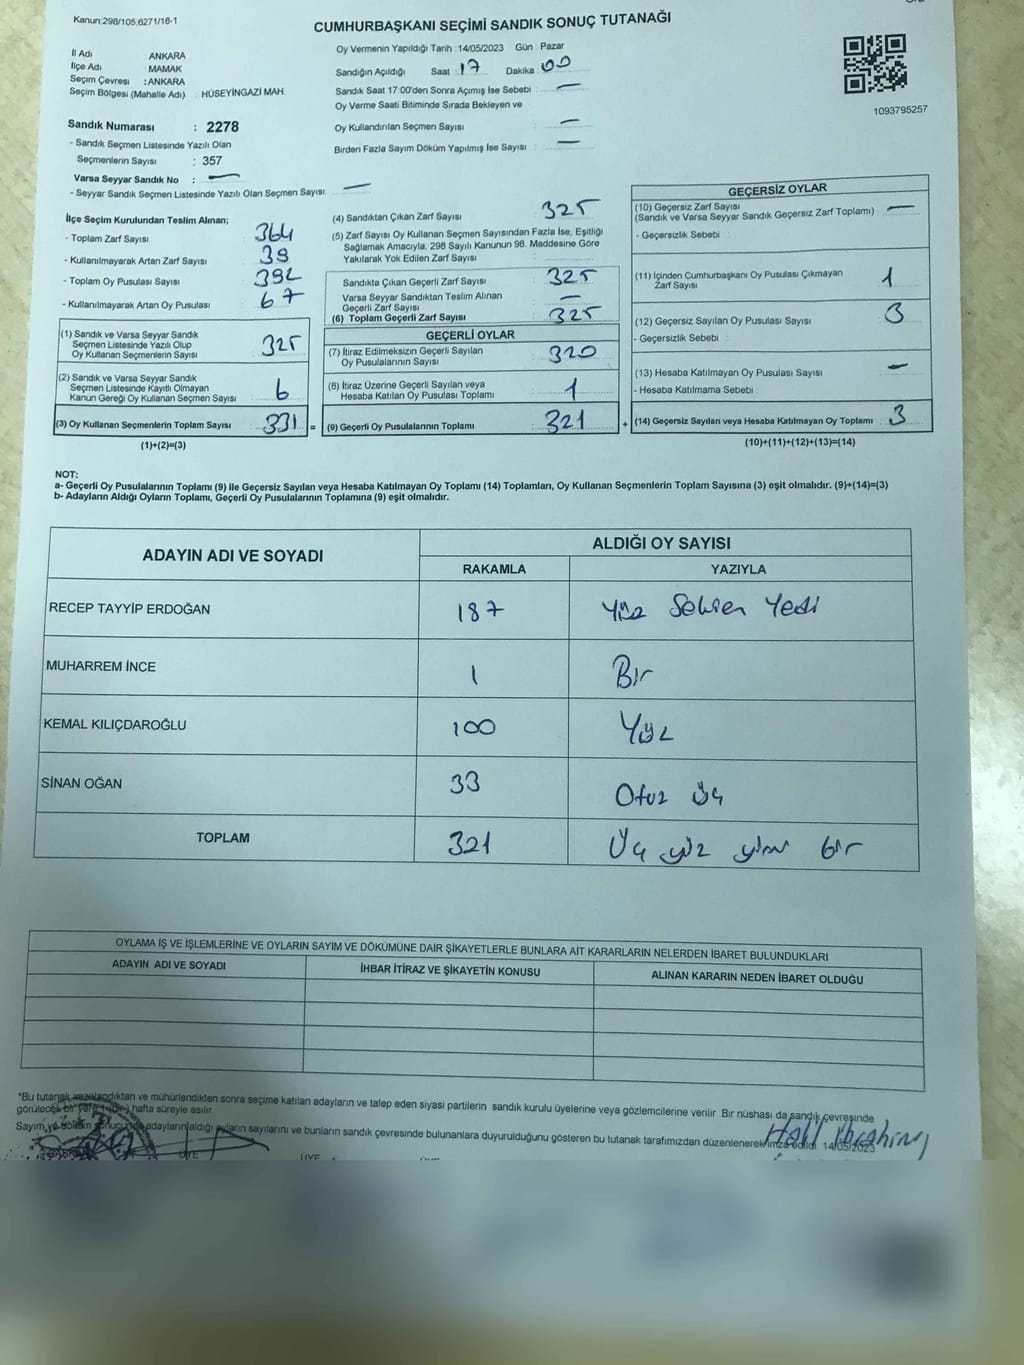 Kanun:298/105,6271/18-1
CUMHURBAŞKANI SEÇİMİ SANDIK SONUÇ TUTANAĞI
İl Adı ANKARA
İlçe Adı : MAMAK
Seçim Çevresi : ANKARA
Seçim Bölgesi (Mahalle Adı) : HÜSEYİNGAZİ MAH.
Oy Vermenin Yapıldığı Tarih :14/05/2023 Gün : Pazar
Sandığın Açıldığı Saat : 17 Dakika : 00
Sandık Saat 17:00'den Sonra Açımış İse Sebebi : —
Oy Verme Saati Bitiminde Sırada Bekleyen ve
Oy Kullandırılan Seçmen Sayısı : —
Birden Fazla Sayım Döküm Yapılmış İse Sayısı : —
1093795257
Sandık Numarası : 2278
- Sandık Seçmen Listesinde Yazılı Olan
Seçmenlerin Sayısı : 357
Varsa Seyyar Sandık No : —
- Seyyar Sandık Seçmen Listesinde Yazılı Olan Seçmen Sayısı : —
İlçe Seçim Kurulundan Teslim Alınan;
- Toplam Zarf Sayısı : 364
- Kullanılmayarak Artan Zarf Sayısı : 39
- Toplam Oy Pusulası Sayısı : 392
- Kullanılmayarak Artan Oy Pusulası : 67
(1) Sandık ve Varsa Seyyar Sandık
Seçmen Listesinde Yazılı Olup
Oy Kullanan Seçmenlerin Sayısı : 325
(2) Sandık ve Varsa Seyyar Sandık
Seçmen Listesinde Kayıtlı Olmayan
Kanun Gereği Oy Kullanan Seçmen Sayısı : 6
(3) Oy Kullanan Seçmenlerin Toplam Sayısı : 331 =
(1)+(2)=(3)
(4) Sandıktan Çıkan Zarf Sayısı : 325
(5) Zarf Sayısı Oy Kullanan Seçmen Sayısından Fazla İse, Eşitliği
Sağlamak Amacıyla, 298 Sayılı Kanunun 98. Maddesine Göre
Yakılarak Yok Edilen Zarf Sayısı :
Sandıkta Çıkan Geçerli Zarf Sayısı : 325
Varsa Seyyar Sandıktan Teslim Alınan
Geçerli Zarf Sayısı : —
(6) Toplam Geçerli Zarf Sayısı : 325
GEÇERLİ OYLAR
(7) İtiraz Edilmeksizin Geçerli Sayılan
Oy Pusulalarının Sayısı : 320
(8) İtiraz Üzerine Geçerli Sayılan veya
Hesaba Katılan Oy Pusulası Toplamı : 1
(9) Geçerli Oy Pusulalarının Toplamı : 321 +
GEÇERSİZ OYLAR
(10) Geçersiz Zarf Sayısı
(Sandık ve Varsa Seyyar Sandık Geçersiz Zarf Toplamı) : —
- Geçersizlik Sebebi :
(11) İçinden Cumhurbaşkanı Oy Pusulası Çıkmayan
Zarf Sayısı : 1
(12) Geçersiz Sayılan Oy Pusulası Sayısı : 3
- Geçersizlik Sebebi :
(13) Hesaba Katılmayan Oy Pusulası Sayısı : —
- Hesaba Katılmama Sebebi :
(14) Geçersiz Sayılan veya Hesaba Katılmayan Oy Toplamı : 3
(10)+(11)+(12)+(13)=(14)
NOT:
a- Geçerli Oy Pusulalarının Toplamı (9) ile Geçersiz Sayılan veya Hesaba Katılmayan Oy Toplamı (14) Toplamları, Oy Kullanan Seçmenlerin Toplam Sayısına (3) eşit olmalıdır. (9)+(14)=(3)
b- Adayların Aldığı Oyların Toplamı, Geçerli Oy Pusulalarının Toplamına (9) eşit olmalıdır.
ADAYIN ADI VE SOYADI
ALDIĞI OY SAYISI
RAKAMLA YAZIYLA
RECEP TAYYİP ERDOĞAN 187 Yüz Seksen Yedi
MUHARREM İNCE 1 Bir
KEMAL KILIÇDAROĞLU 100 Yüz
SİNAN OĞAN 33 Otuz üç
TOPLAM 321 Üç yüz yirmi bir
OYLAMA İŞ VE İŞLEMLERİNE VE OYLARIN SAYIM VE DÖKÜMÜNE DAİR ŞİKAYETLERLE BUNLARA AİT KARARLARIN NELERDEN İBARET BULUNDUKLARI
ADAYIN ADI VE SOYADI İHBAR İTİRAZ VE ŞİKAYETİN KONUSU ALINAN KARARIN NEDEN İBARET OLDUĞU
*Bu tutanak imzalandıktan ve mühürlendikten sonra seçime katılan adayların ve talep eden siyasi partilerin sandık kurulu üyelerine veya gözlemcilerine verilir. Bir nüshası da sandık çevresinde
görülecek bir yere 1 (bir) hafta süreyle asılır.
Sayım ve döküm sonucunda adayların aldığı oyların sayılarını ve bunların sandık çevresinde bulunanlara duyurulduğunu gösteren bu tutanak tarafımızdan düzenlenerek imza edildi. 14/05/2023
Halil İbrahim
BAŞKAN ÜYE ÜYE